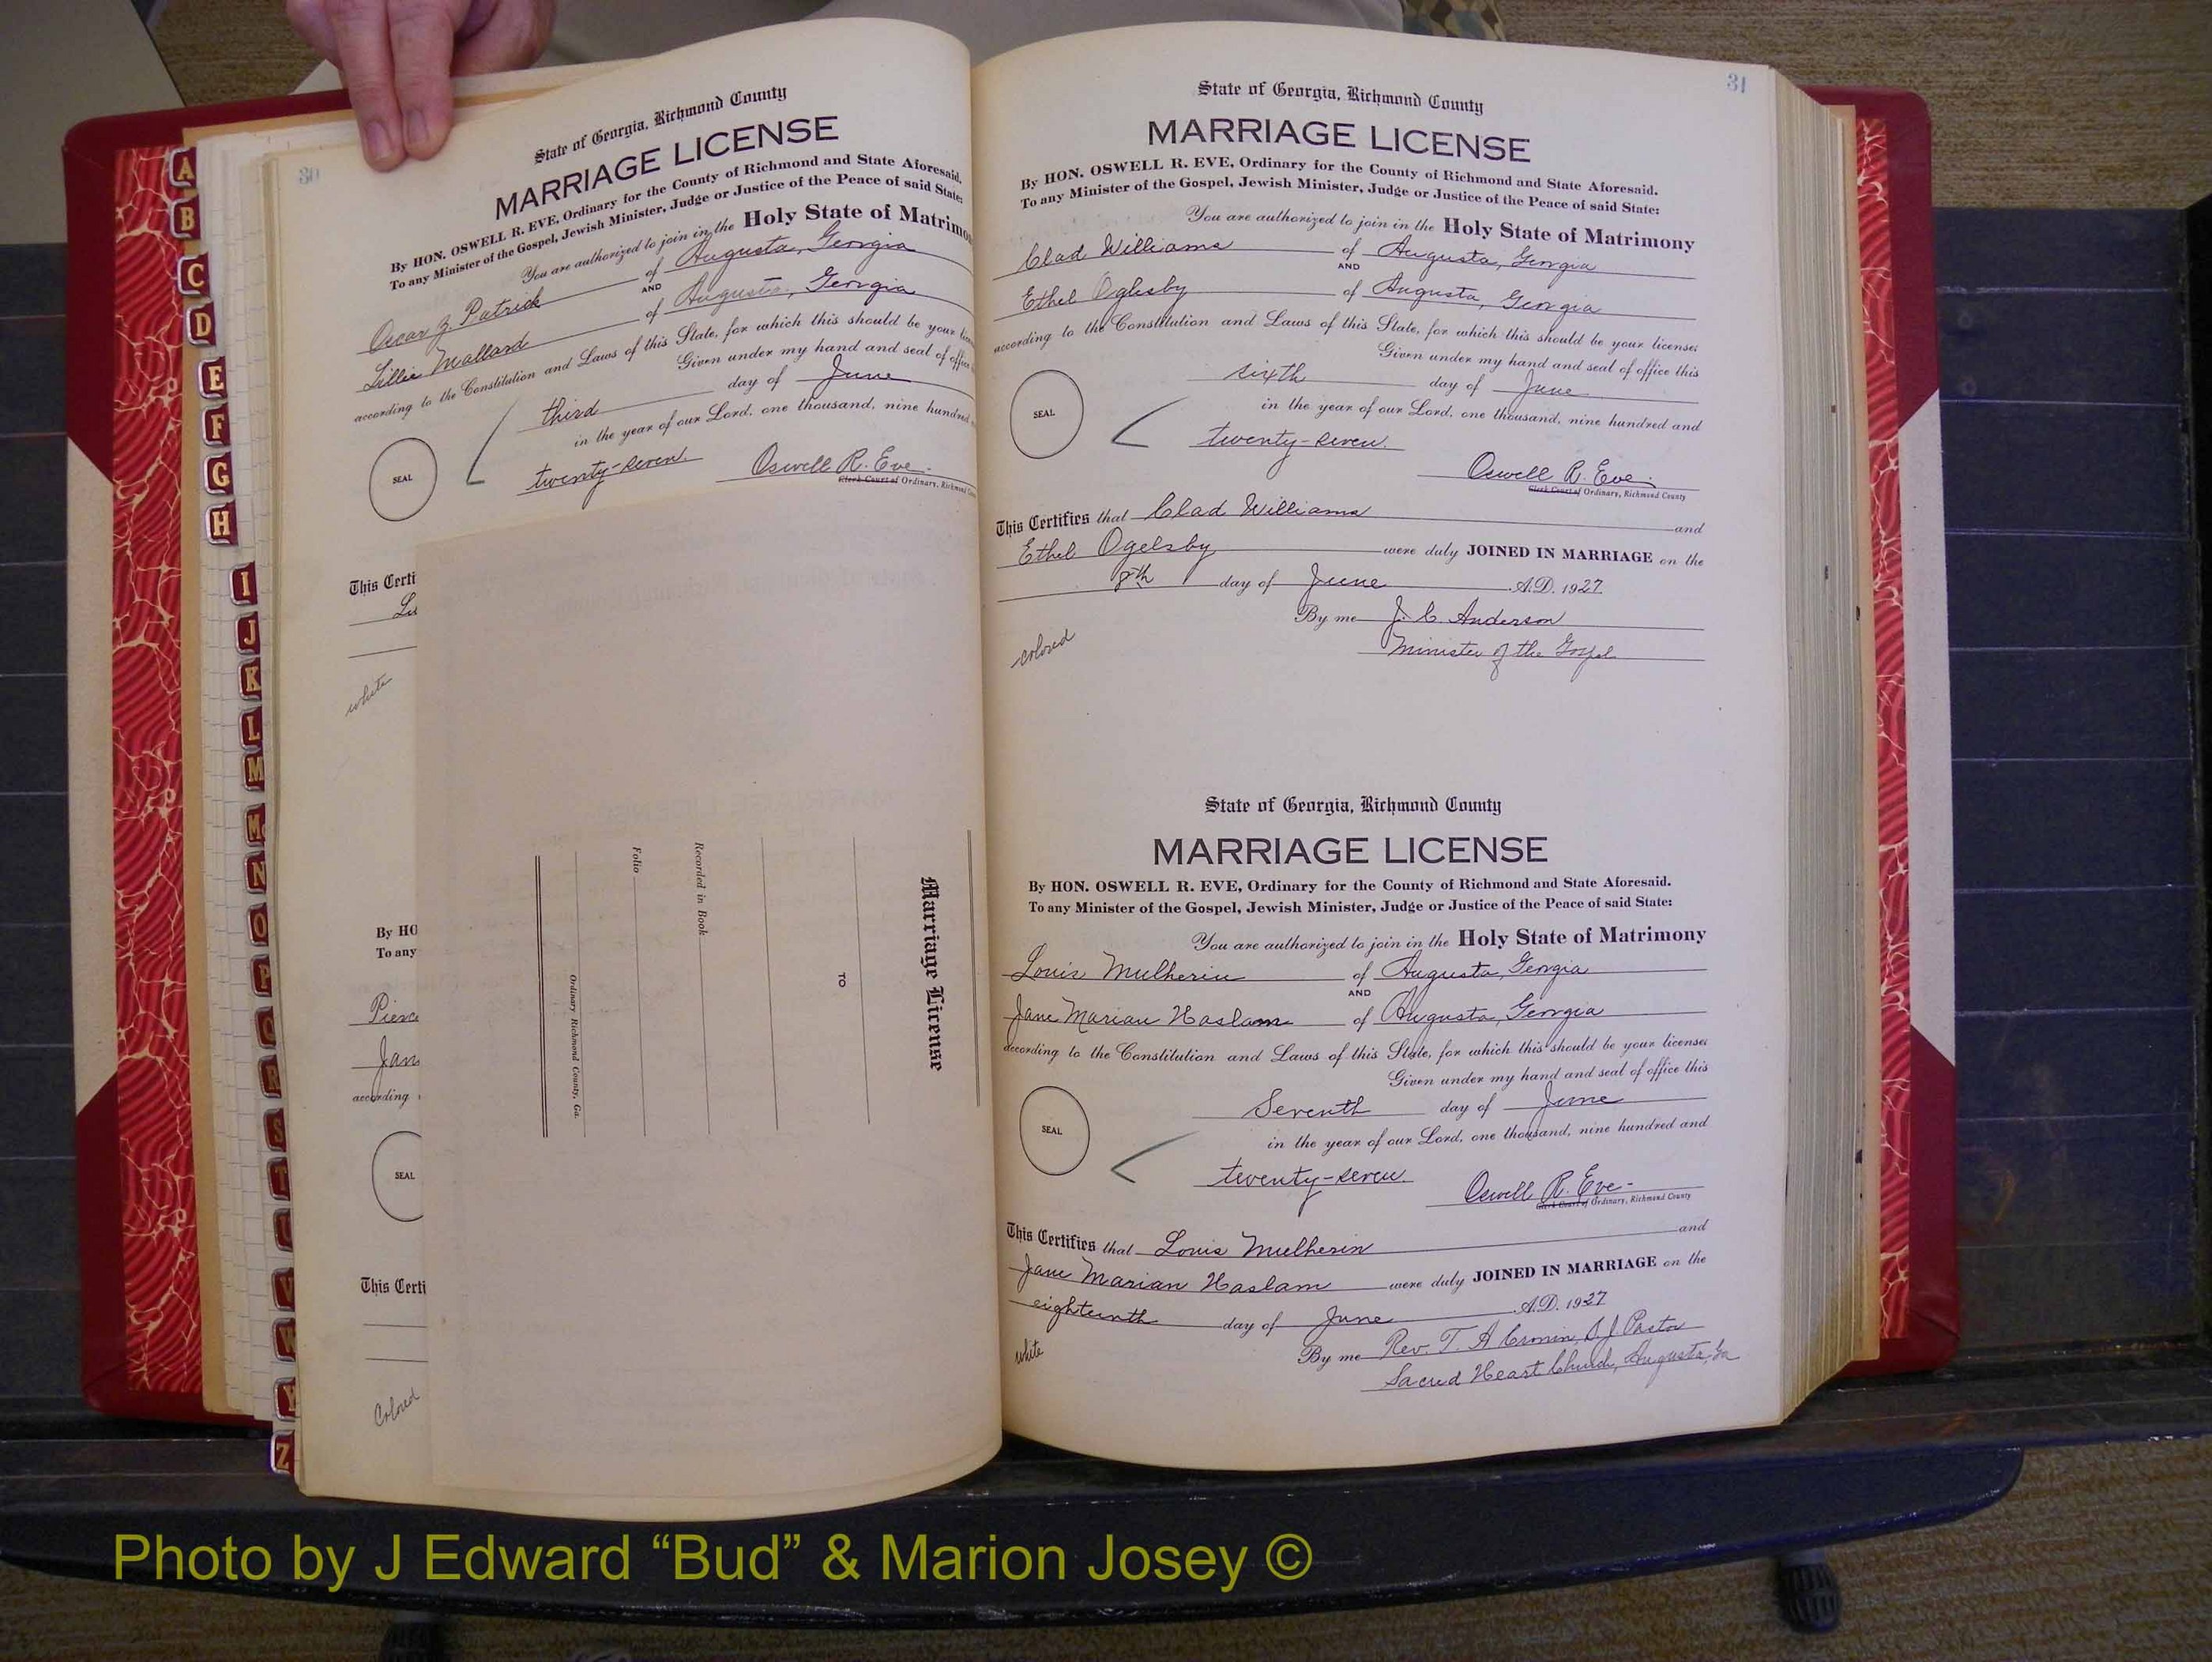 30
State of Georgia, Richmond County
MARRIAGE LICENSE
By HON. OSWELL R. EVE, Ordinary for the County of Richmond and State Aforesaid.
To any Minister of the Gospel, Jewish Minister, Judge or Justice of the Peace of said State:
You are authorized to join in the Holy State of Matrimo
Oscar Z. Patrick of Augusta, Georgia
AND
Lillie Mallard of Augusta, Georgia
according to the Constitution and Laws of this State, for which this should be your lice
Given under my hand and seal of office
third day of June
in the year of our Lord, one thousand, nine hundred
SEAL
twenty-seven. Oswell R. Eve.
Clerk Court of Ordinary, Richmond
This Certi
Lu
white
By HO
To any
Pierce
Jan
according
SEAL
This Certi
Colored
Marriage License
TO
Recorded in Book
Folio
Ordinary Richmond County, Ga.
A
B
C
D
E
F
G
H
I
J
K
L
M
Mc
N
O
P
Q
R
S
T
U
V
W
Y
Z
31
State of Georgia, Richmond County
MARRIAGE LICENSE
By HON. OSWELL R. EVE, Ordinary for the County of Richmond and State Aforesaid.
To any Minister of the Gospel, Jewish Minister, Judge or Justice of the Peace of said State:
You are authorized to join in the Holy State of Matrimony
Clad Williams of Augusta, Georgia
AND
Ethel Oglesby of Augusta, Georgia
according to the Constitution and Laws of this State, for which this should be your license:
Given under my hand and seal of office this
sixth day of June
SEAL
in the year of our Lord, one thousand, nine hundred and
twenty-seven.
Oswell R. Eve.
Clerk Court of Ordinary, Richmond County
This Certifies that Clad Williams and
Ethel Ogelsby were duly JOINED IN MARRIAGE on the
8th day of June A.D. 1927.
By me J. C. Anderson
Minister of the Gospel
colored
State of Georgia, Richmond County
MARRIAGE LICENSE
By HON. OSWELL R. EVE, Ordinary for the County of Richmond and State Aforesaid.
To any Minister of the Gospel, Jewish Minister, Judge or Justice of the Peace of said State:
You are authorized to join in the Holy State of Matrimony
Louis Mulherin of Augusta, Georgia
AND
Jane Marian Haslam of Augusta, Georgia
according to the Constitution and Laws of this State, for which this should be your license:
Given under my hand and seal of office this
Seventh day of June
SEAL
in the year of our Lord, one thousand, nine hundred and
twenty-seven.
Oswell R. Eve-
Clerk Court of Ordinary, Richmond County
This Certifies that Louis Mulherin and
Jane Marian Haslam were duly JOINED IN MARRIAGE on the
eighteenth day of June A.D. 1927
white
By me Rev. T. A Cronin, S.J Pastor
Sacred Heart Church, Augusta, Ga
Photo by J Edward “Bud” & Marion Josey ©